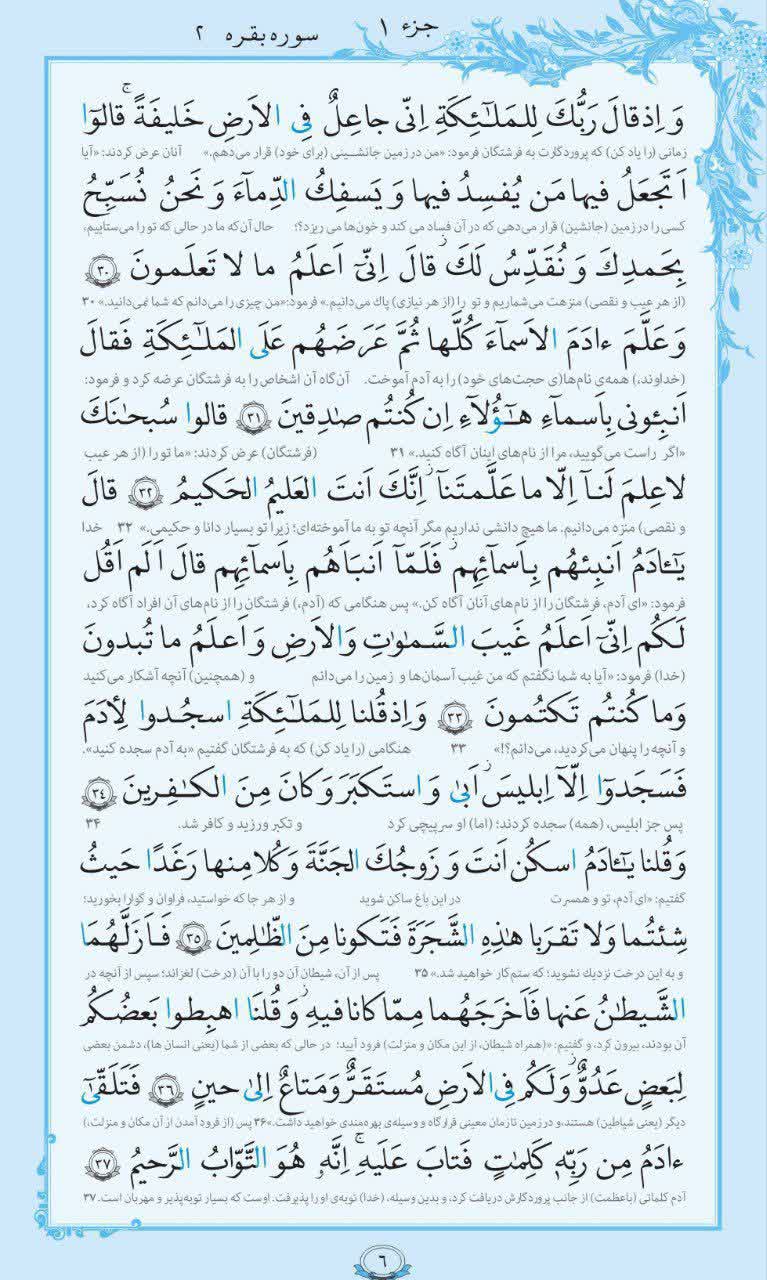 جزء ١
سوره بقره ٢
وَ اِذ قالَ رَبُّكَ لِلمَلٰٓئِكَةِ اِنّی جاعِلٌ فِی الاَرضِ خَلیفَةً ۚ قالوٓا
زمانی (را یاد کن) که پروردگارت به فرشتگان فرمود: «من در زمین جانشینی (برای خود) قرار می‌دهم.» آنان عرض کردند: «آیا
اَتَجعَلُ فیها مَن یُفسِدُ فیها وَ یَسفِكُ الدِّمآءَ وَ نَحنُ نُسَبِّحُ
کسی را در زمین (جانشین) قرار می‌دهی که در آن فساد می کند و خون‌ها می ریزد؟؛ حال آن‌که ما در حالی که تو را می‌ستاییم،
بِحَمدِكَ وَ نُقَدِّسُ لَكَ ۖ قالَ اِنّیٓ اَعلَمُ ما لا تَعلَمونَ ﴿٣٠﴾
(از هر عیب و نقصی) منزهت می‌شماریم و تو را (از هر نیازی) پاك می‌دانیم.» فرمود: «من چیزی را می‌دانم که شما نمی‌دانید.» ٣٠
وَ عَلَّمَ ءادَمَ الاَسمآءَ كُلَّها ثُمَّ عَرَضَهُم عَلَی المَلٰٓئِكَةِ فَقالَ
(خداوند،) همه‌ی نام‌ها(ی حجت‌های خود) را به آدم آموخت. آن‌گاه آن اشخاص را به فرشتگان عرضه کرد و فرمود:
اَنبِئونی بِاَسمآءِ هٰٓؤُلآءِ اِن كُنتُم صٰدِقینَ ﴿٣١﴾ قالوا سُبحٰنَكَ
«اگر راست می‌گویید، مرا از نام‌های اینان آگاه کنید.» ٣١ (فرشتگان) عرض کردند: «ما تو را (از هر عیب
لا عِلمَ لَنآ اِلّا ما عَلَّمتَنآ ۖ اِنَّكَ اَنتَ العَلیمُ الحَكیمُ ﴿٣٢﴾ قالَ
و نقصی) منزه می‌دانیم. ما هیچ دانشی نداریم مگر آنچه تو به ما آموخته‌ای؛ زیرا تو بسیار دانا و حکیمی.» ٣٢ خدا
یٰٓـادَمُ اَنبِئهُم بِاَسمآئِهِم ۖ فَلَمّآ اَنبَاَهُم بِاَسمآئِهِم قالَ اَلَم اَقُل
فرمود: «ای آدم، فرشتگان را از نام‌های آنان آگاه کن.» پس هنگامی که (آدم،) فرشتگان را از نام‌های آن افراد آگاه کرد،
لَكُم اِنّیٓ اَعلَمُ غَیبَ السَّمٰوٰتِ وَالاَرضِ وَ اَعلَمُ ما تُبدونَ
(خدا) فرمود: «آیا به شما نگفتم که من غیب آسمان‌ها و زمین را می‌دانم و (همچنین) آنچه آشکار می‌کنید
وَما كُنتُم تَكتُمونَ ﴿٣٣﴾ وَ اِذ قُلنا لِلمَلٰٓئِكَةِ اسجُدوا لِأدَمَ
و آنچه را پنهان می‌کردید، می‌دانم؟!» ٣٣ هنگامی (را یاد کن) که به فرشتگان گفتیم «به آدم سجده کنید».
فَسَجَدوٓا اِلّآ اِبلیسَ ۖ اَبیٰ وَ استَكبَرَ وَ كانَ مِنَ الكٰفِرینَ ﴿٣٤﴾
پس جز ابلیس، (همه) سجده کردند؛ (اما) او سرپیچی کرد و تکبر ورزید و کافر شد. ٣۴
وَ قُلنا یٰٓـادَمُ اسكُن اَنتَ وَ زَوجُكَ الجَنَّةَ وَ كُلا مِنها رَغَدًا حَیثُ
گفتیم: «ای آدم، تو و همسرت در این باغ ساکن شوید و از هر جا که خواستید، فراوان و گوارا بخورید؛
شِئتُما وَلا تَقرَبا هٰذِهِ الشَّجَرَةَ فَتَكونا مِنَ الظّالِمینَ ﴿٣٥﴾ فَاَزَلَّهُمَا
و به این درخت نزدیك نشوید؛ که ستم‌کار خواهید شد.» ٣۵ پس از آن، شیطان آن دو را با آن (درخت) لغزاند؛ سپس از آنچه در
الشَّیطٰنُ عَنها فَاَخرَجَهُما مِمّا كانا فیهِ ۖ وَ قُلنَا اهبِطوا بَعضُكُم
آن بودند، بیرون کرد، و گفتیم: «(همراه شیطان، از این مکان و منزلت) فرود آیید؛ در حالی که بعضی از شما (یعنی انسان ها)، دشمن بعضی
لِبَعضٍ عَدُوٌّ ۖ وَ لَكُم فِی الاَرضِ مُستَقَرٌّ وَ مَتاعٌ اِلیٰ حینٍ ﴿٣٦﴾ فَتَلَقّیٰٓ
دیگر (یعنی شیاطین) هستند، و در زمین تا زمان معینی قرارگاه و وسیله‌ی بهره‌مندی خواهید داشت.» ٣۶ پس (از فرود آمدن از آن مکان و منزلت،)
ءادَمُ مِن رَبِّهٖ كَلِمٰتٍ فَتابَ عَلَیهِ ۚ اِنَّهٗ هُوَ التَّوّابُ الرَّحیمُ ﴿٣٧﴾
آدم کلماتی (باعظمت) از جانب پروردگارش دریافت کرد، و بدین وسیله، (خدا) توبه‌ی او را پذیرفت. اوست که بسیار توبه‌پذیر و مهربان است. ٣٧
٦